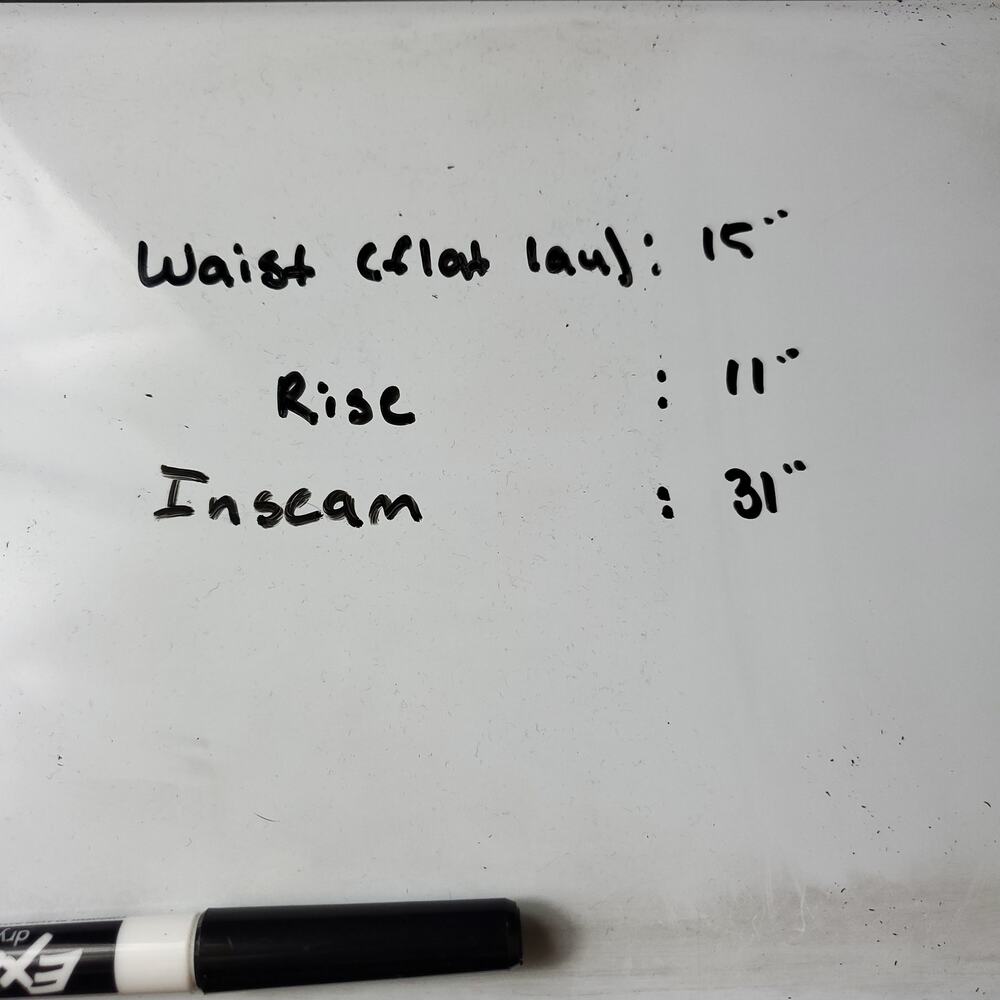 Waist (flat lay): 15"
Rise : 11"
Inseam : 31"
EX
dry